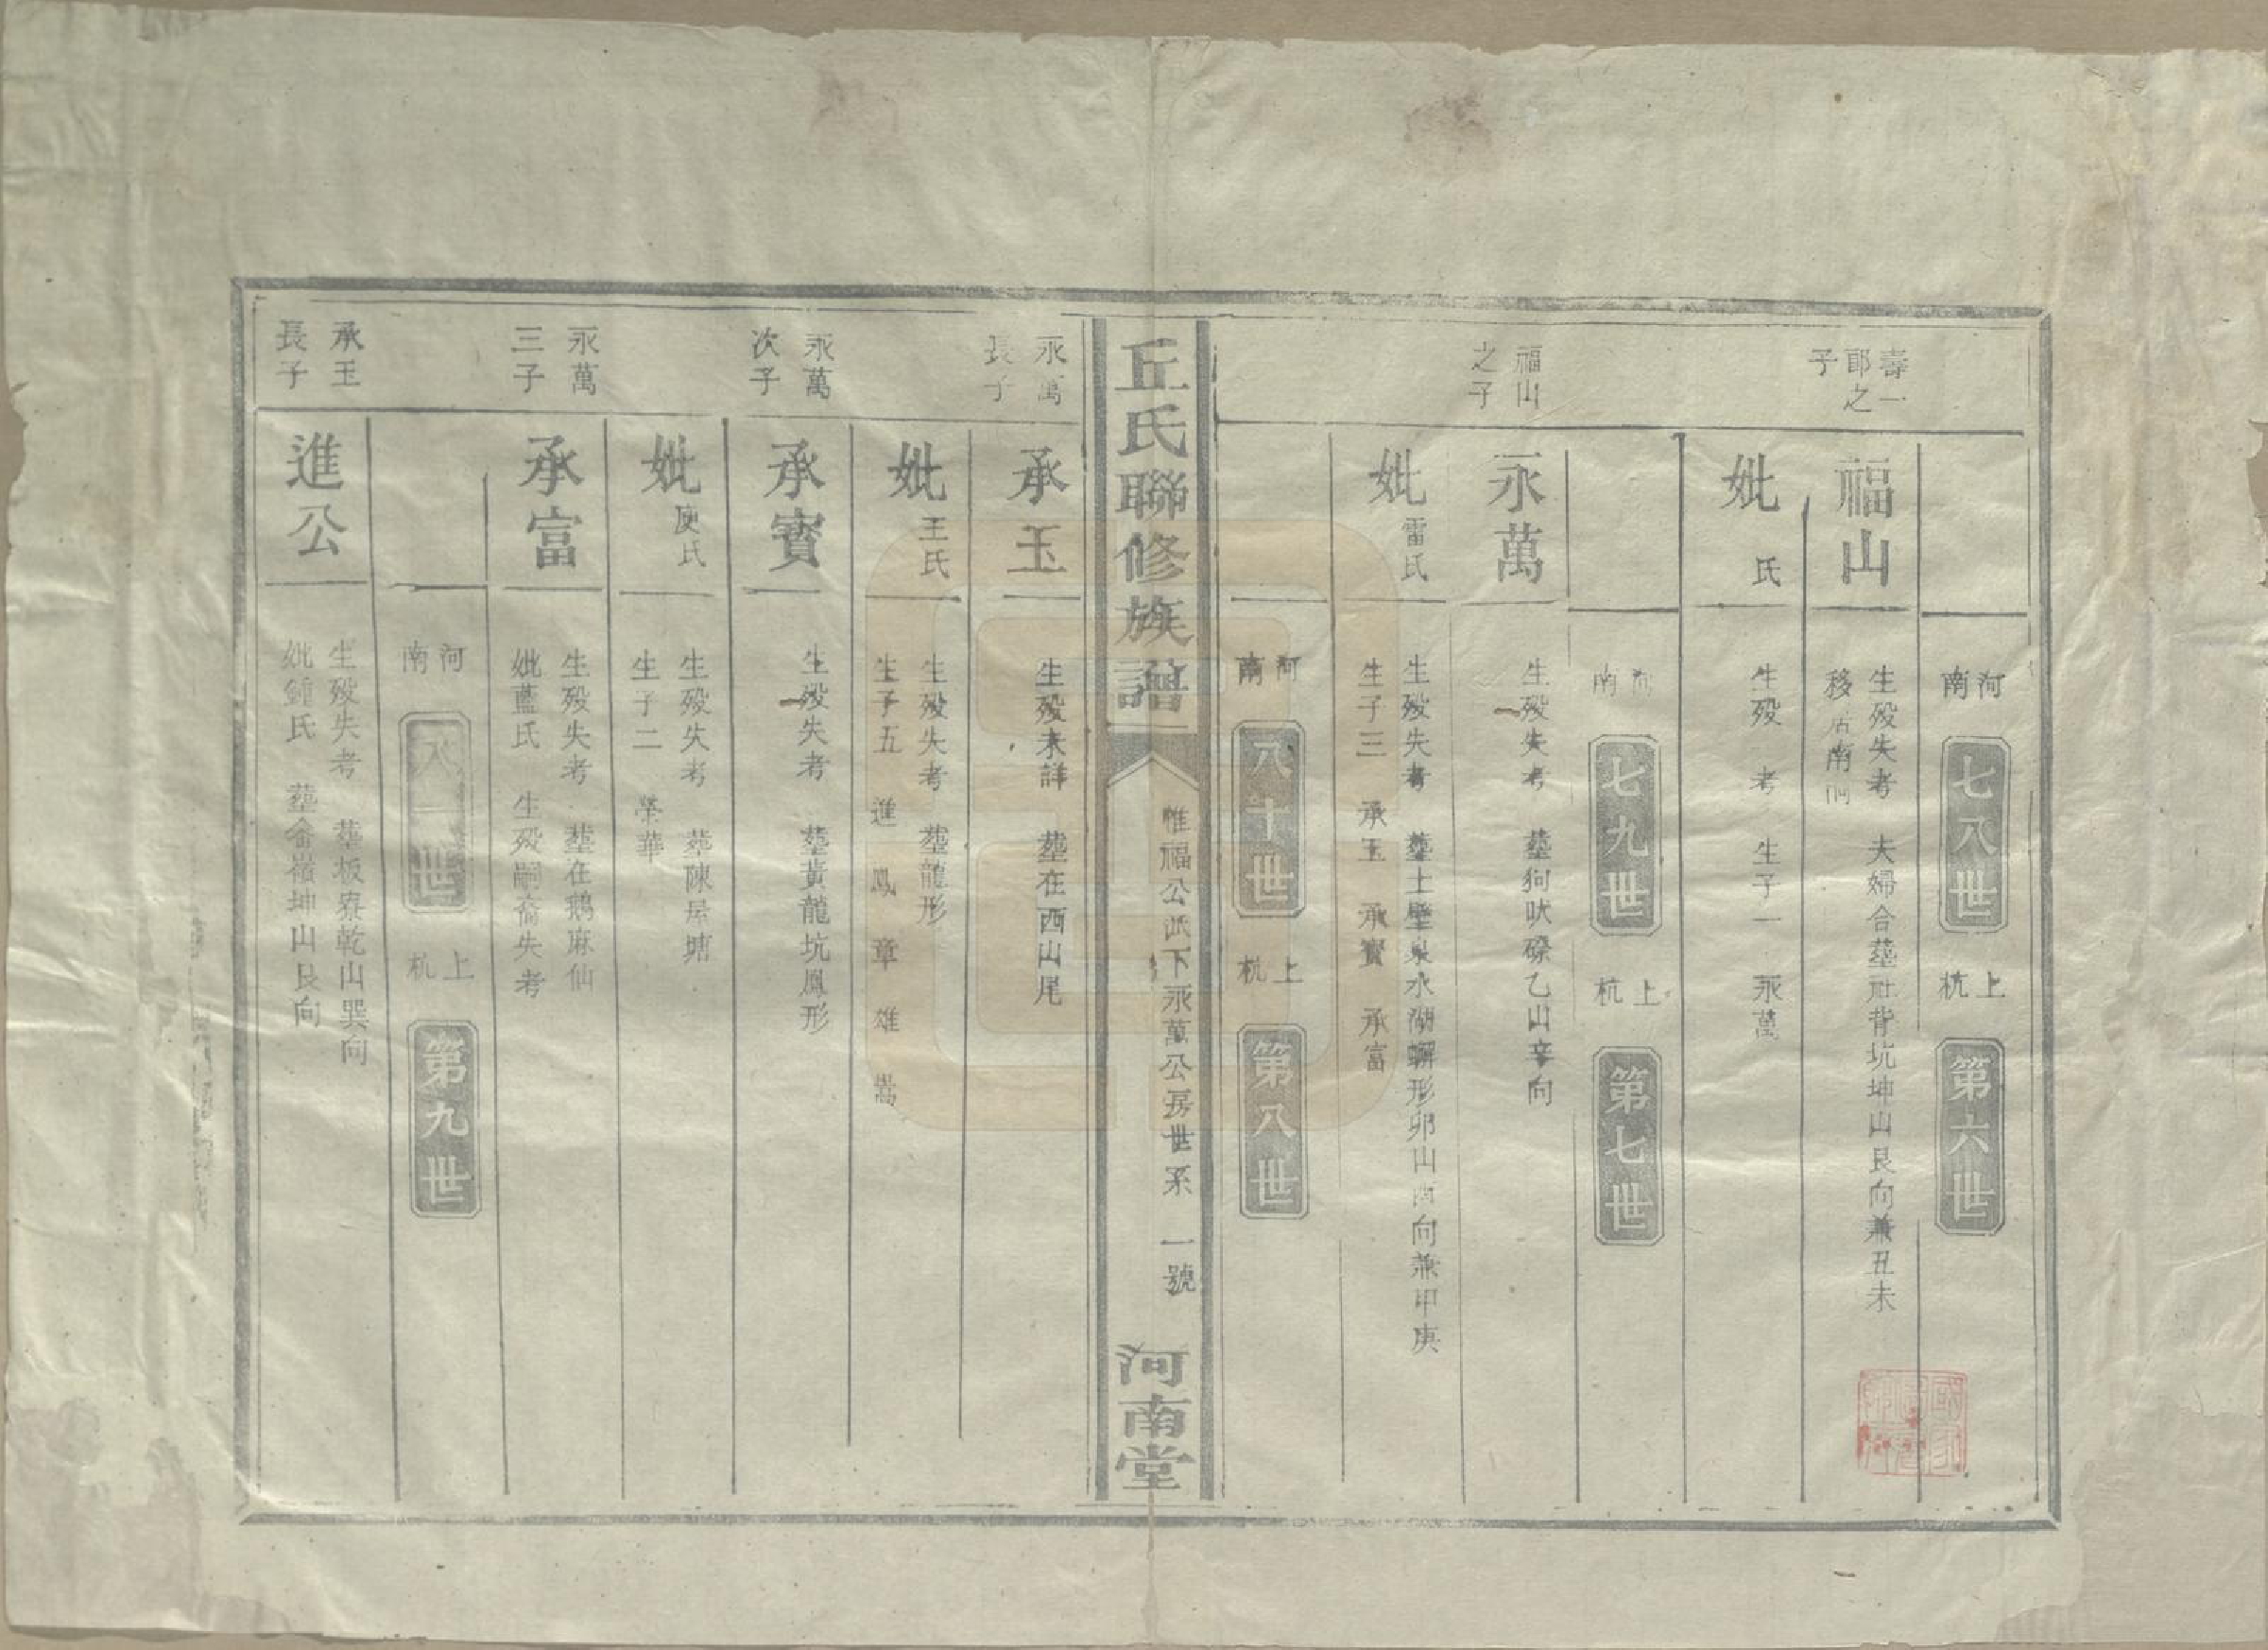 河南 七八世 上杭 第六世
壽一郎之子
福山
生殁失考 夫婦合塟社背坑坤山艮向兼丑未
移居南洞
妣 氏
生殁 考 生子一 永萬
河南 七九世 上杭 第七世
福山之子
永萬
生殁失考 塟狗吠磜乙山辛向
妣雷氏
生殁失考 塟上壁泉水湖螺形卯山酉向兼甲庚
生子三 承玉 承寳 承富
河南 八十世 上杭 第八世
丘氏聯修族譜
惟福公派下永萬公房世系 一號
河南堂
永萬長子
承玉
生殁未詳 塟在西山尾
妣王氏
生殁失考 塟龍形
生子五 進 鳳 章 雄 嵩
永萬次子
承寳
生殁失考 塟黃龍坑鳳形
妣庚氏
生殁失考 塟陳屋塘
生子二 榮華
永萬三子
承富
生殁失考 塟在鵝麻仙
妣藍氏 生殁嗣裔失考
河南 八一世 上杭 第九世
承玉長子
進公
生殁失考 塟板寮乾山巽向
妣鍾氏 塟畲嶺坤山艮向